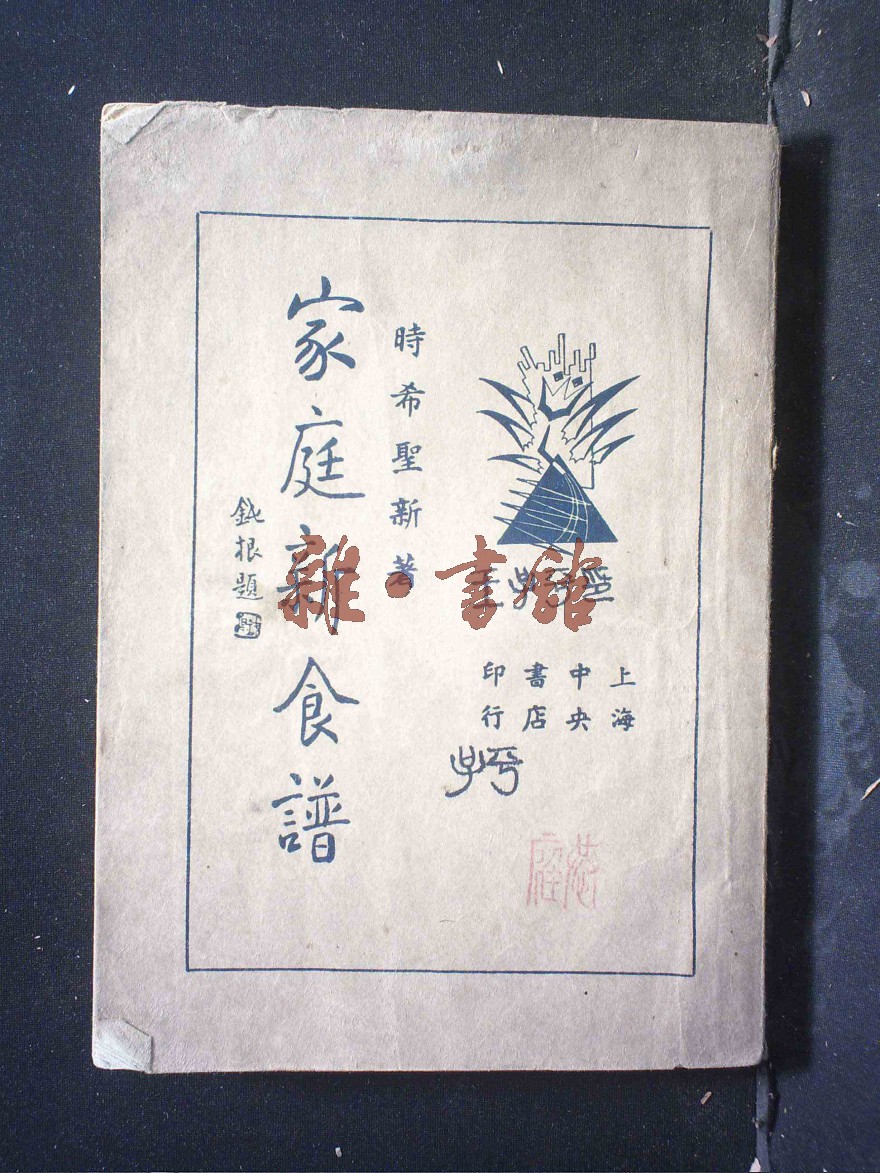 上海
中央
書店
印行
時希聖新著
家庭新食譜
鈍根題
雜·書館